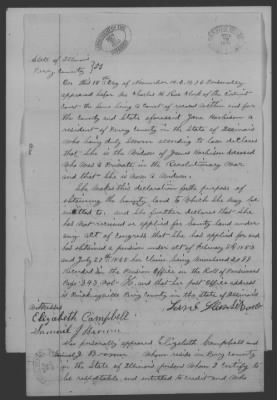 State of Illinois
Perry County } SS
On this 18th Day of November A.D. 1876 Personally
appeared before me Charles H. Rice Clerk of the District
Court the same being a Court of record within and for
the County and State aforesaid Jane Harbison a
resident of Perry County in the State of Illinois
who being duly sworn according to law declare
that She is the Widow of James Harbison deceased
who was a Private in the Revolutionary War
and that She is now a Widow.
She makes this declaration for the purpose of
obtaining the bounty land to which She may be
entitled to. and She further declares that She
has not received or applied for bounty land under
any act of Congress that She has applied for and
has obtained a pension under act of February 3d 1853
and July 27th 1868 her Claim being Numbered
Recorded in the Pension Office in the Roll of Pensioners
Page 393 Vol. and that her post Office address
is Perry County in the State of Illinois
Witnesses
Elizabeth Campbell
Samuel J Brown
Also personally appeared Elizabeth Campbell and
Samuel J Brown whom reside in Perry County
in the State of Illinois persons whom I certify to
be respectable, and entitled to credit and who